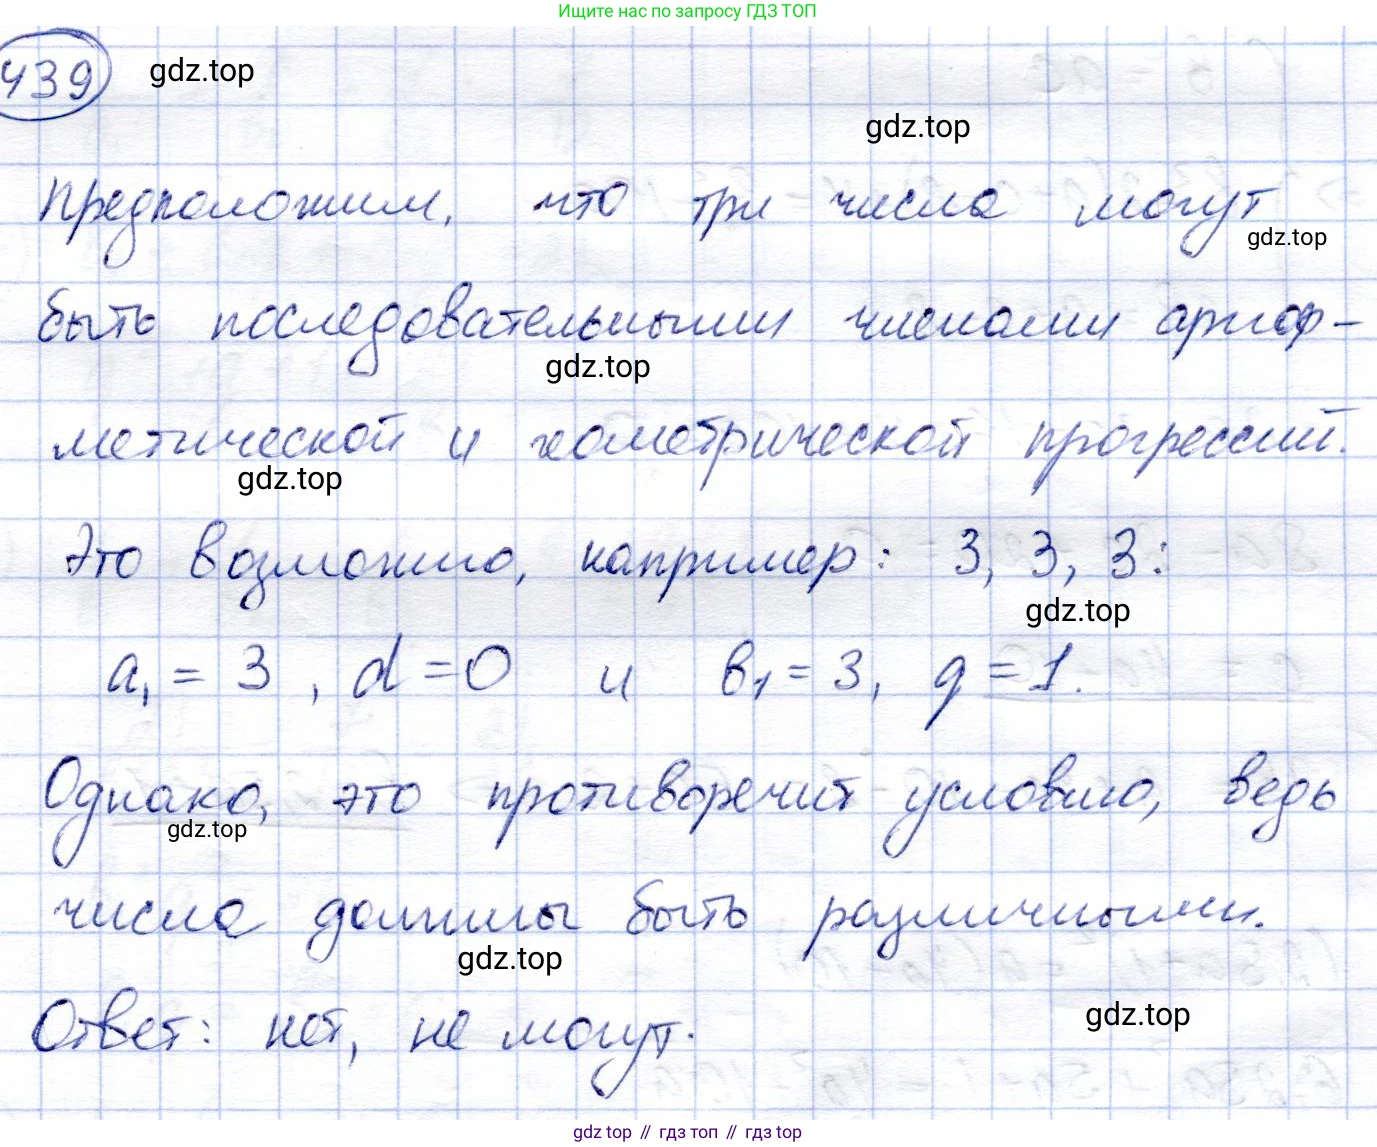 Ищите нас по запросу ГДЗ ТОП
439
gdz.top
gdz.top
Предположим, что три числа могут
gdz.top
быть последовательными членами ариф-
gdz.top
метической и геометрической прогрессий.
gdz.top
Это возможно, например: 3, 3, 3:
gdz.top
a₁ = 3, d = 0 и b₁ = 3, q = 1.
Однако, это противоречит условию, ведь
gdz.top
числа должны быть различными.
gdz.top
Ответ: нет, не могут.
gdz.top
gdz top // гдз топ // гдз top